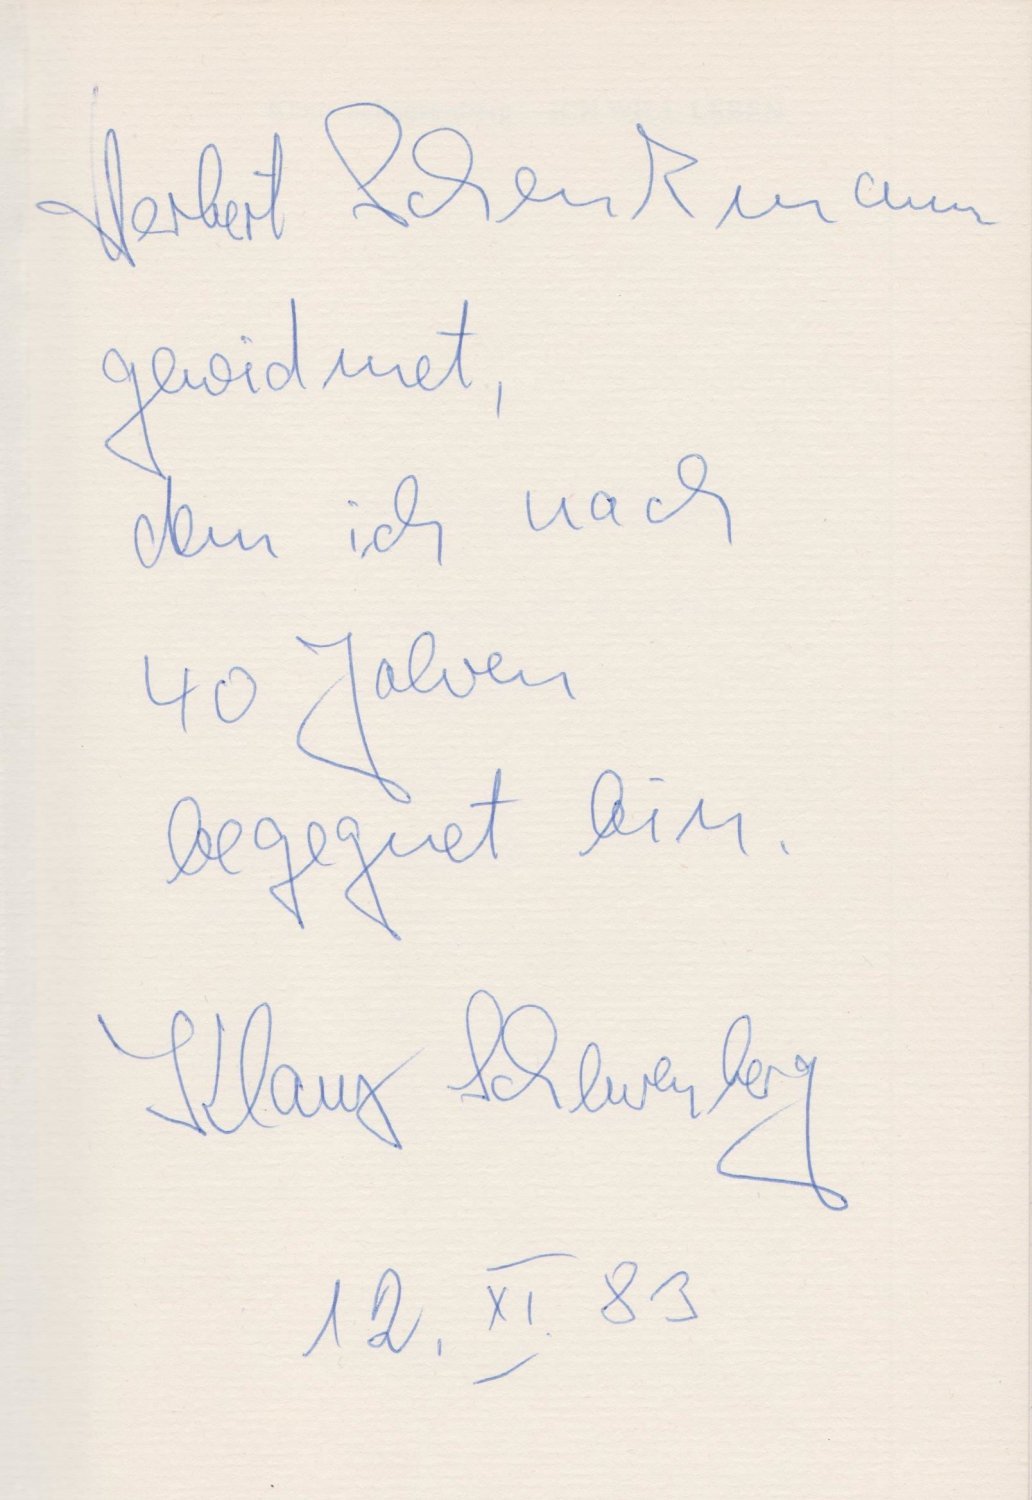 Herbert Schenkmann
gewidmet,
dem ich nach
40 Jahren
begegnet bin.
Klaus
12. XI. 83